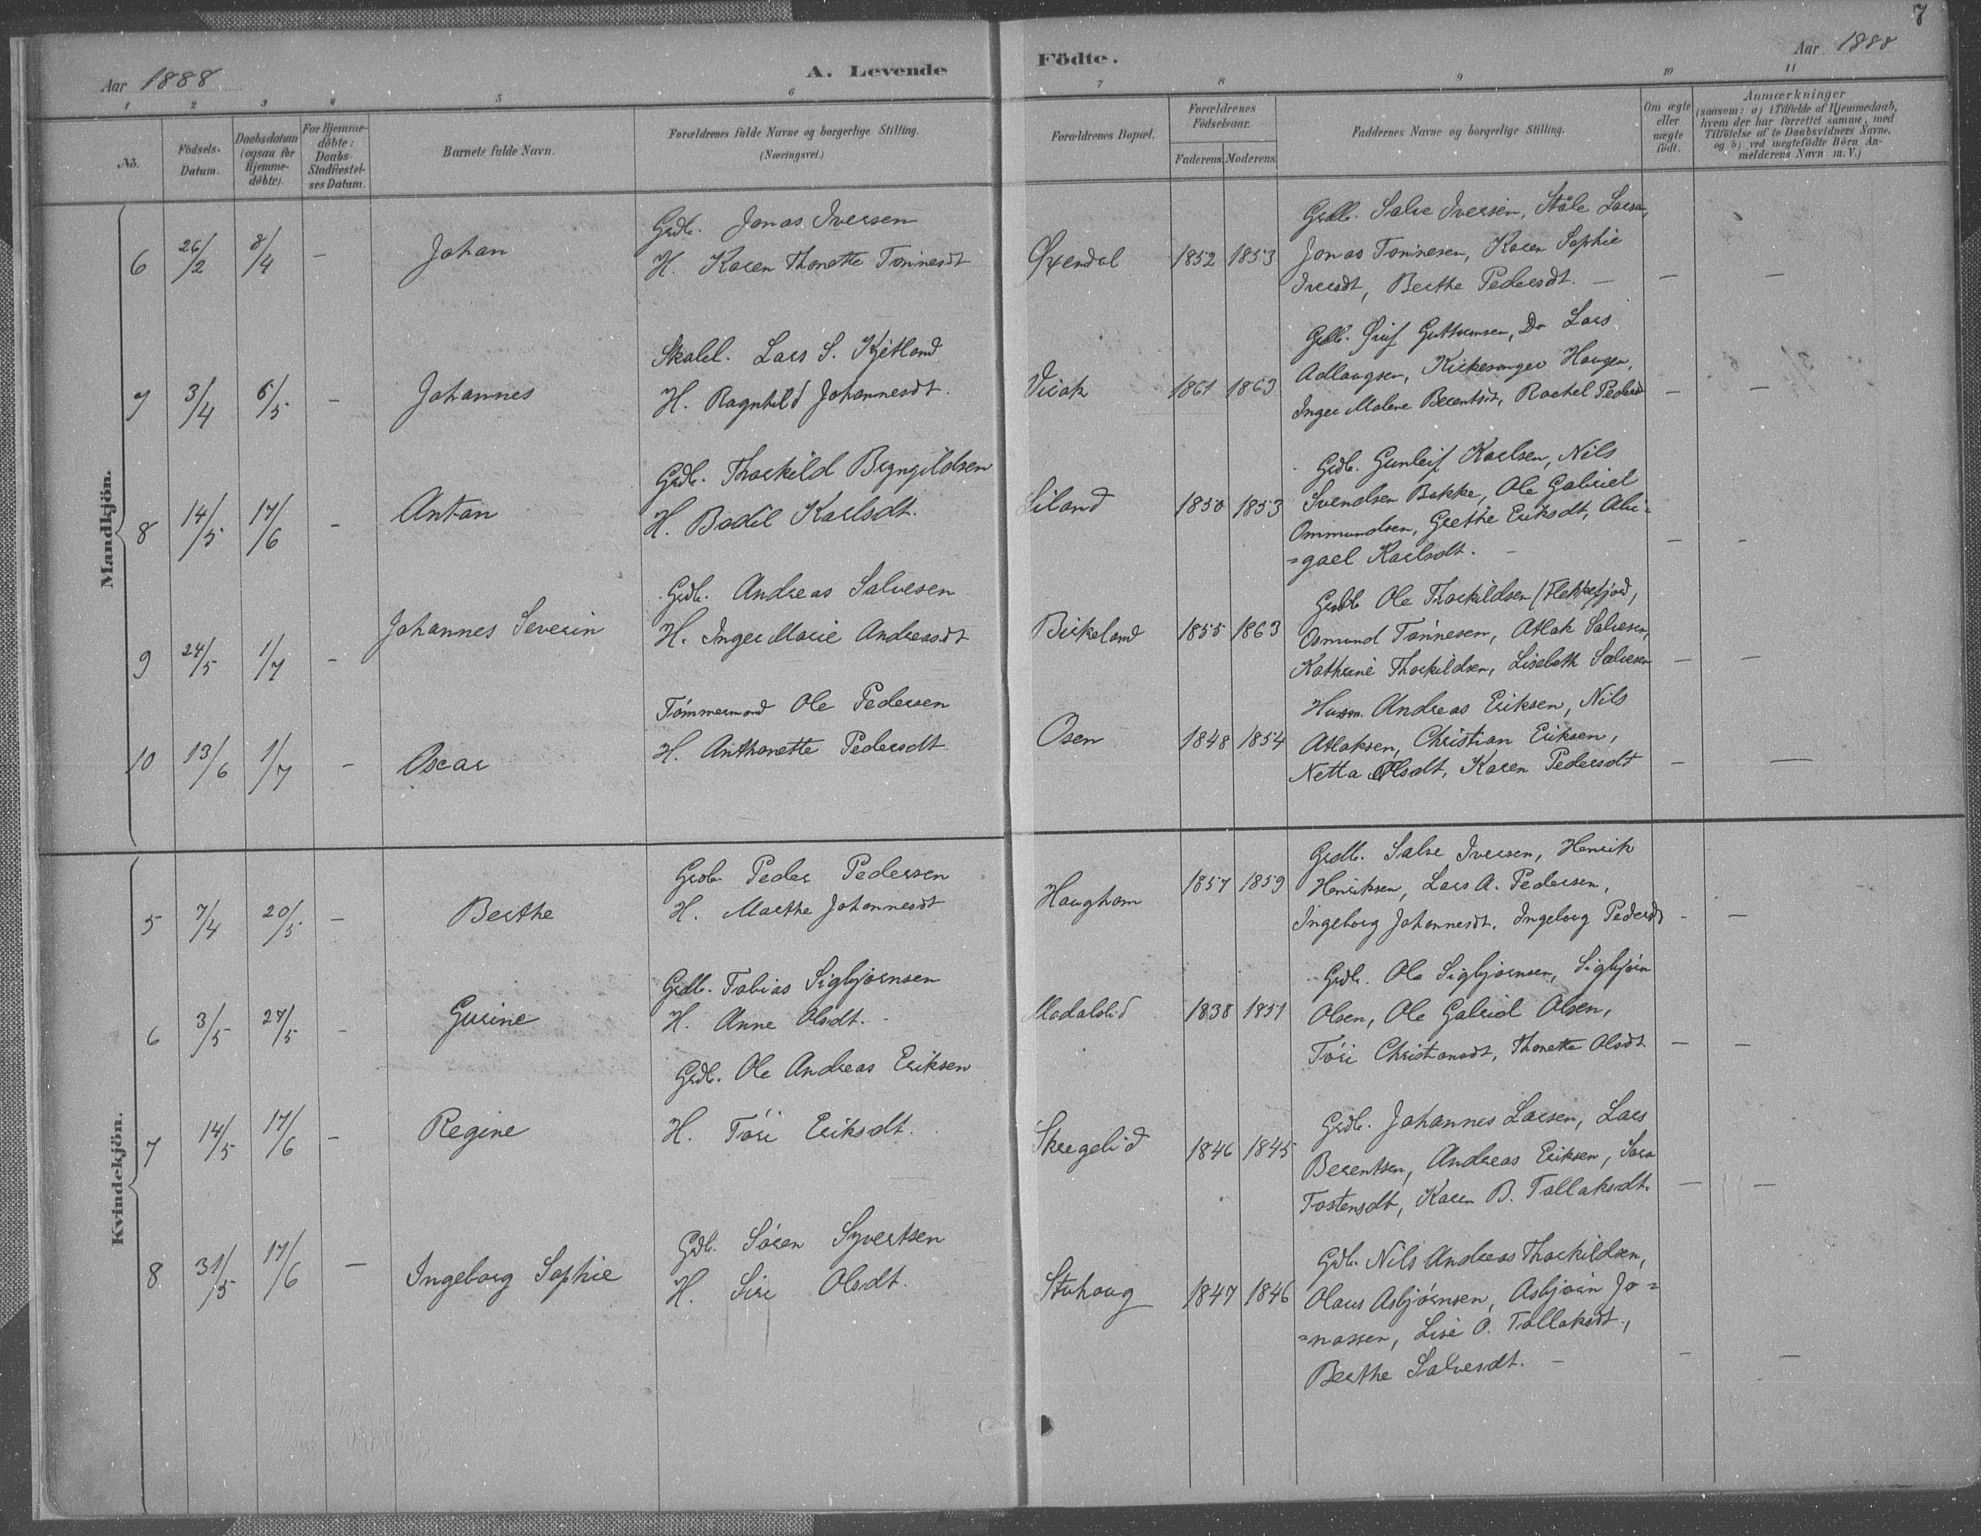 7
Aar 1888
A. Levende
Födte.
Aar 1888
1 2 3 4 5 6 7 8 9 10 11
No.
Födsels-Datum.
Daabsdatum (ogsaa for Hjemme-döbte).
For Hjemme-döbte: Daabs-Stadfæstel-ses Datum.
Barnets fulde Navn.
Forældrenes fulde Navne og borgerlige Stilling.
(Næringsvei.)
Forældrenes Bopæl.
Forældrenes Födselsaar.
Faderens. Moderens.
Faddernes Navne og borgerlige Stilling.
Om ægte eller uægte födt.
Anmærkninger
(saasom: a) i Tilfælde af Hjemmedaab,
hvem der har forrettet samme, med
Tilföielse af to Daabsvidners Navne,
og b) ved uægtefödte Börn An-
melderens Navn m. V.)
Mandkjön.
6 26/2 8/4 - Johan
Grdb. Jonas Iversen
H. Karen Thonette Tønnesdt
Øxendal 1852 1853
Grdb. Salve Iversen, Ståle Larsen,
Jonas Tønnesen, Karen Sophie
Iversdt, Berthe Pedersdt. —
7 3/4 6/5 - Johannes
Skolel. Lars S. Kjetland
H. Ragnhild Johannesdt.
Virak 1861 1863
Grdb. Guttormsen, Do Lars
Adlaugsen, Kirkesanger Haugen,
Inger Malene Berentsdt, Rachel Pedersd
8 14/5 17/6 - Anton
Grdb. Thorkild Bryngildsen
H. Bodil Karlsdt.
Liland 1850 1853
Grdb. Gunleif Karlsen, Nils
Svendsen Bakke, Ole Gabriel
Ommundsen, Grethe Eriksdt, Abi-
=gael Karlsdt. -
9 24/5 1/7 - Johannes Severin
Grdb. Andreas Salvesen
H. Inger Marie Andreasdt
Birkeland 1855 1863
Grdb Ole Thorkildsen (Flekkefjord,
Osmund Tønnesen, Atlak Salvesen,
Kathrine Thorkildsen, Lisabeth Salvesen
10 13/6 1/7 - Oscar
Tømmermand Ole Pedersen
H. Anthonette Pedersdt
Osen 1848 1854
Husm. Andreas Eriksen, Nils
Atlaksen, Christian Eriksen,
Netta Olsdt, Karen Pedersdt
Kvindekjön.
5 7/4 20/5 - Berthe
Grdb. Peder Pedersen
H. Marthe Johannesdt
Haughom 1857 1859
Grdb. Salve Iversen, Henrik
Henriksen, Lars A. Pedersen,
Ingeborg Johannesdt. Ingeborg Pedersdt
6 3/5 27/5 - Gurine
Grdb. Tobias Sigbjørnsen
H. Anne Olsdt. -
Modalslid 1838 1851
Grdb. Ole Sigbjørnsen, Sigbjørn
Olsen, Ole Gabriel Olsen,
Tøri Christansdt, Thonette Olsdt.
7 14/5 17/6 - Regine
Grdb. Ole Andreas Eriksen
H. Tøri Eriksdt.
Skregelid 1846 1845
Grdb. Johannes Larsen, Lars
Berentsen, Andreas Eriksen, Sara
Tostensdt, Karen B. Tollaksdt.
8 31/5 17/6 - Ingeborg Sophie
Grdb. Søren Syvertsen
H. Siri Olsdt.
Stuhaug 1847 1846
Grdb. Nils Andreas Thorkildsen,
Olaus Asbjørnsen, Asbjørn Jo=
=nassen, Lise O. Tollaksdt.,
Berthe Salvesdt. -